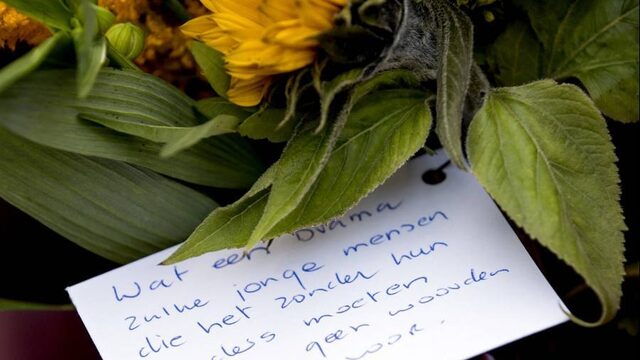 Wat een Drama
zulke jonge mensen
die het zonder hun
ders moeten
geen woorden
voor.